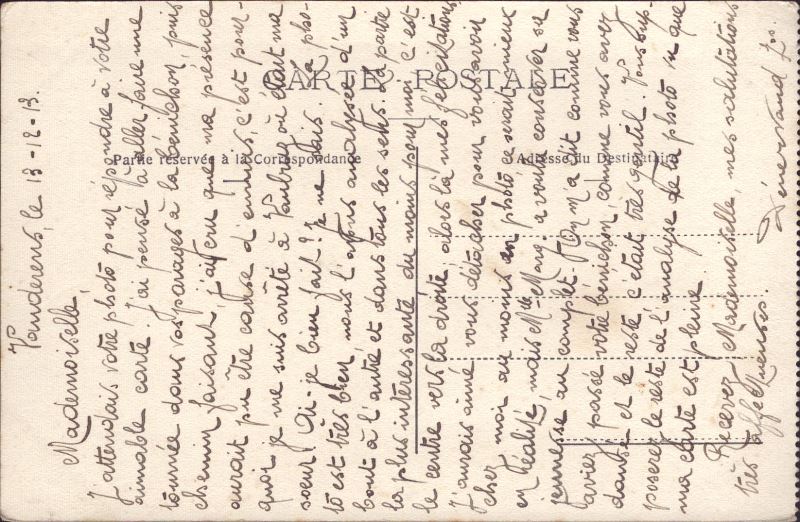 CARTE POSTALE
Partie réservée à la Correspondance
Adresse du Destinataire
Vauderens, le 13-12-13.
Mademoiselle,
J'attendais votre photo pour répondre à votre
aimable carte. J'ai pensé à aller faire une
tournée dans vos parages à la bénichon, puis
chemin faisant, j'ai cru que ma présence
aurait pu être cause d'ennuis, c'est pour-
quoi je me suis arrêté à où était ma
soeur! Ai-je bien fait? Je ne sais. La pho-
to est très bien, nous l'avons analysée d'un
bout à l'autre, et dans tous les sens. La partie
la plus intéressante du moins pour moi c'est
le centre vers la droite, alors là mes félicitations
J'aurais aimé vous détacher pour vous avoir
chez moi au moins en photo ce serait mieux
en réalité, mais Mlle Marg. a voulu conserver sa
jeunesse au complet. On m'a dit comme vous
aviez passé votre bénichon, comme vous avez
dansé et le reste c'était très gentil. Vous sup-
poserez le reste de l'analyse de la photo, vu que
ma carte est pleine.
Recevez, Mademoiselle, mes salutations
très affectueuses.